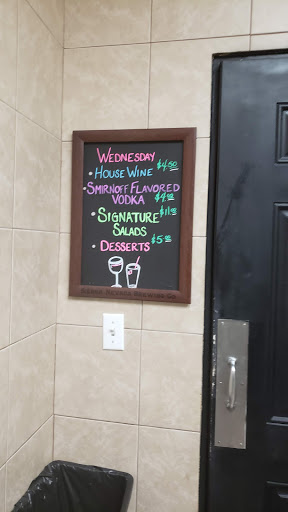 WEDNESDAY
• HOUSE WINE $4.50
• SMIRNOFF FLAVORED
VODKA $4.50
• SIGNATURE $11.95
SALADS
• DESSERTS $5.95
SIERRA NEVADA BREWING CO.